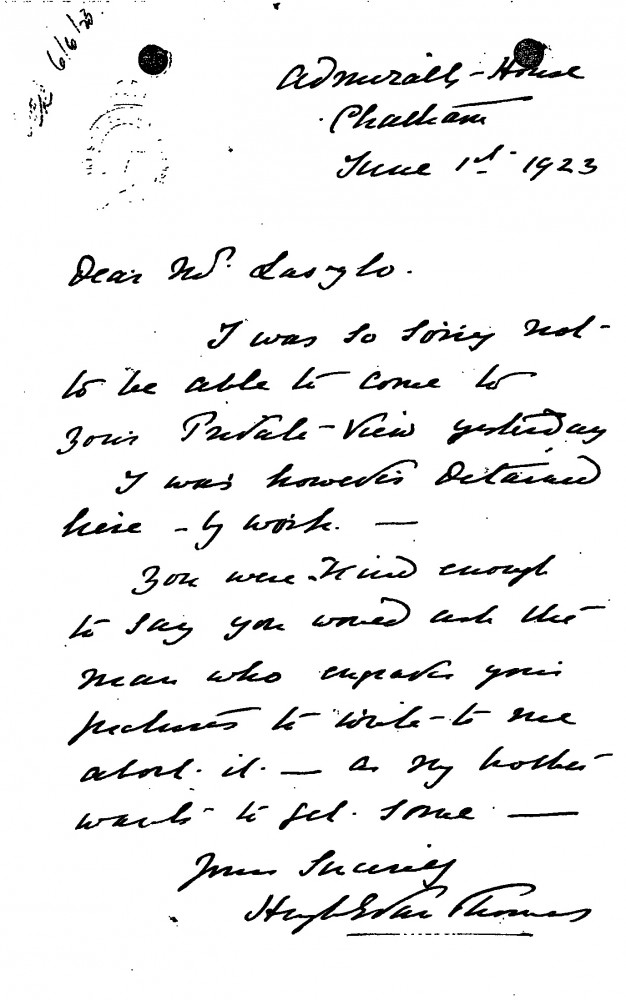 6/6/23.
Admiralty-House
Chatham
June 1st 1923
Dear Mr. Laszlo.
I was so sorry not
to be able to come to
your Private-View yesterday
I was however detained
here - by work. —
You were kind enough
to say you would ask the
man who engraves your
pictures to write-to me
about. it. — as my brother
wants to get. some —
Yours Sincerely
Hugh Evan Thomas